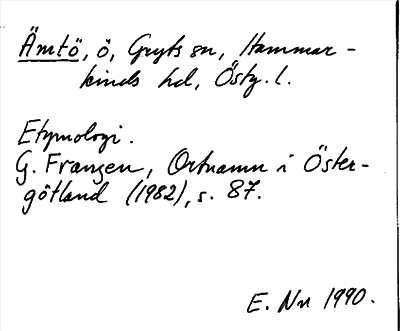 Ämtö, ö, Gryts sn, Hammar-
kinds hd, Östg. l.
Etymologi.
G. Franzen, Ortnamn i Öster-
götland (1982), s. 87.
E. Nn 1990.